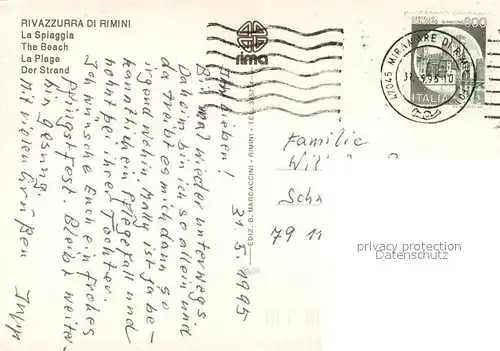 RIVAZZURRA DI RIMINI
La Spiaggia
The Beach
La Plage
Der Strand
rima
EDIZ. B. MARCACCINI - RIMINI
CASTELLO
800
ITALIA
47045 MIRAMARE DI RIMINI
31.5.1995
Ihr Lieben!
Bin mal wieder unterwegs.
Daheim bin ich so allein und
da treibt es mich dann so
irgendwohin. Mally ist ja be-
kanntlich ein Pflegefall und
wohnt bei ihrer Tochter.
Ich wünsche Euch ein frohes
Pfingstfest. Bleibt weiter-
hin gesund.
Mit vielen Grüßen
Familie
Wil
Sch
79 11
privacy protection
Datenschutz